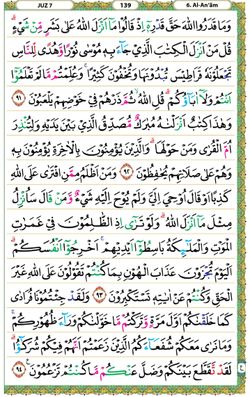 JUZ 7
139
6. Al-An'ām
وَمَا قَدَرُوا اللّٰهَ حَقَّ قَدْرِهٖٓ اِذْ قَالُوْا مَآ اَنْزَلَ اللّٰهُ عَلٰى بَشَرٍ مِّنْ شَيْءٍۗ
قُلْ مَنْ اَنْزَلَ الْكِتٰبَ الَّذِيْ جَاۤءَ بِهٖ مُوْسٰى نُوْرًا وَّهُدًى لِّلنَّاسِ
تَجْعَلُوْنَهٗ قَرَاطِيْسَ تُبْدُوْنَهَا وَتُخْفُوْنَ كَثِيْرًاۚ وَعُلِّمْتُمْ مَّا لَمْ تَعْلَمُوْٓا
اَنْتُمْ وَلَآ اٰبَاۤؤُكُمْۗ قُلِ اللّٰهُۙ ثُمَّ ذَرْهُمْ فِيْ خَوْضِهِمْ يَلْعَبُوْنَ ٩١
وَهٰذَا كِتٰبٌ اَنْزَلْنٰهُ مُبٰرَكٌ مُّصَدِّقُ الَّذِيْ بَيْنَ يَدَيْهِ وَلِتُنْذِرَ
اُمَّ الْقُرٰى وَمَنْ حَوْلَهَاۗ وَالَّذِيْنَ يُؤْمِنُوْنَ بِالْاٰخِرَةِ يُؤْمِنُوْنَ بِهٖ
وَهُمْ عَلٰى صَلَاتِهِمْ يُحٰفِظُوْنَ ٩٢ وَمَنْ اَظْلَمُ مِمَّنِ افْتَرٰى عَلَى اللّٰهِ
كَذِبًا اَوْ قَالَ اُوْحِيَ اِلَيَّ وَلَمْ يُوْحَ اِلَيْهِ شَيْءٌ وَّمَنْ قَالَ سَاُنْزِلُ
مِثْلَ مَآ اَنْزَلَ اللّٰهُۗ وَلَوْ تَرٰٓى اِذِ الظّٰلِمُوْنَ فِيْ غَمَرٰتِ
الْمَوْتِ وَالْمَلٰۤىِٕكَةُ بَاسِطُوْٓا اَيْدِيْهِمْۚ اَخْرِجُوْٓا اَنْفُسَكُمْۗ
اَلْيَوْمَ تُجْزَوْنَ عَذَابَ الْهُوْنِ بِمَا كُنْتُمْ تَقُوْلُوْنَ عَلَى اللّٰهِ غَيْرَ
الْحَقِّ وَكُنْتُمْ عَنْ اٰيٰتِهٖ تَسْتَكْبِرُوْنَ ٩٣ وَلَقَدْ جِئْتُمُوْنَا فُرَادٰى
كَمَا خَلَقْنٰكُمْ اَوَّلَ مَرَّةٍ وَّتَرَكْتُمْ مَّا خَوَّلْنٰكُمْ وَرَاۤءَ ظُهُوْرِكُمْۚ
وَمَا نَرٰى مَعَكُمْ شُفَعَاۤءَكُمُ الَّذِيْنَ زَعَمْتُمْ اَنَّهُمْ فِيْكُمْ شُرَكٰۤؤُاۗ
لَقَدْ تَّقَطَّعَ بَيْنَكُمْ وَضَلَّ عَنْكُمْ مَّا كُنْتُمْ تَزْعُمُوْنَ ٩٤